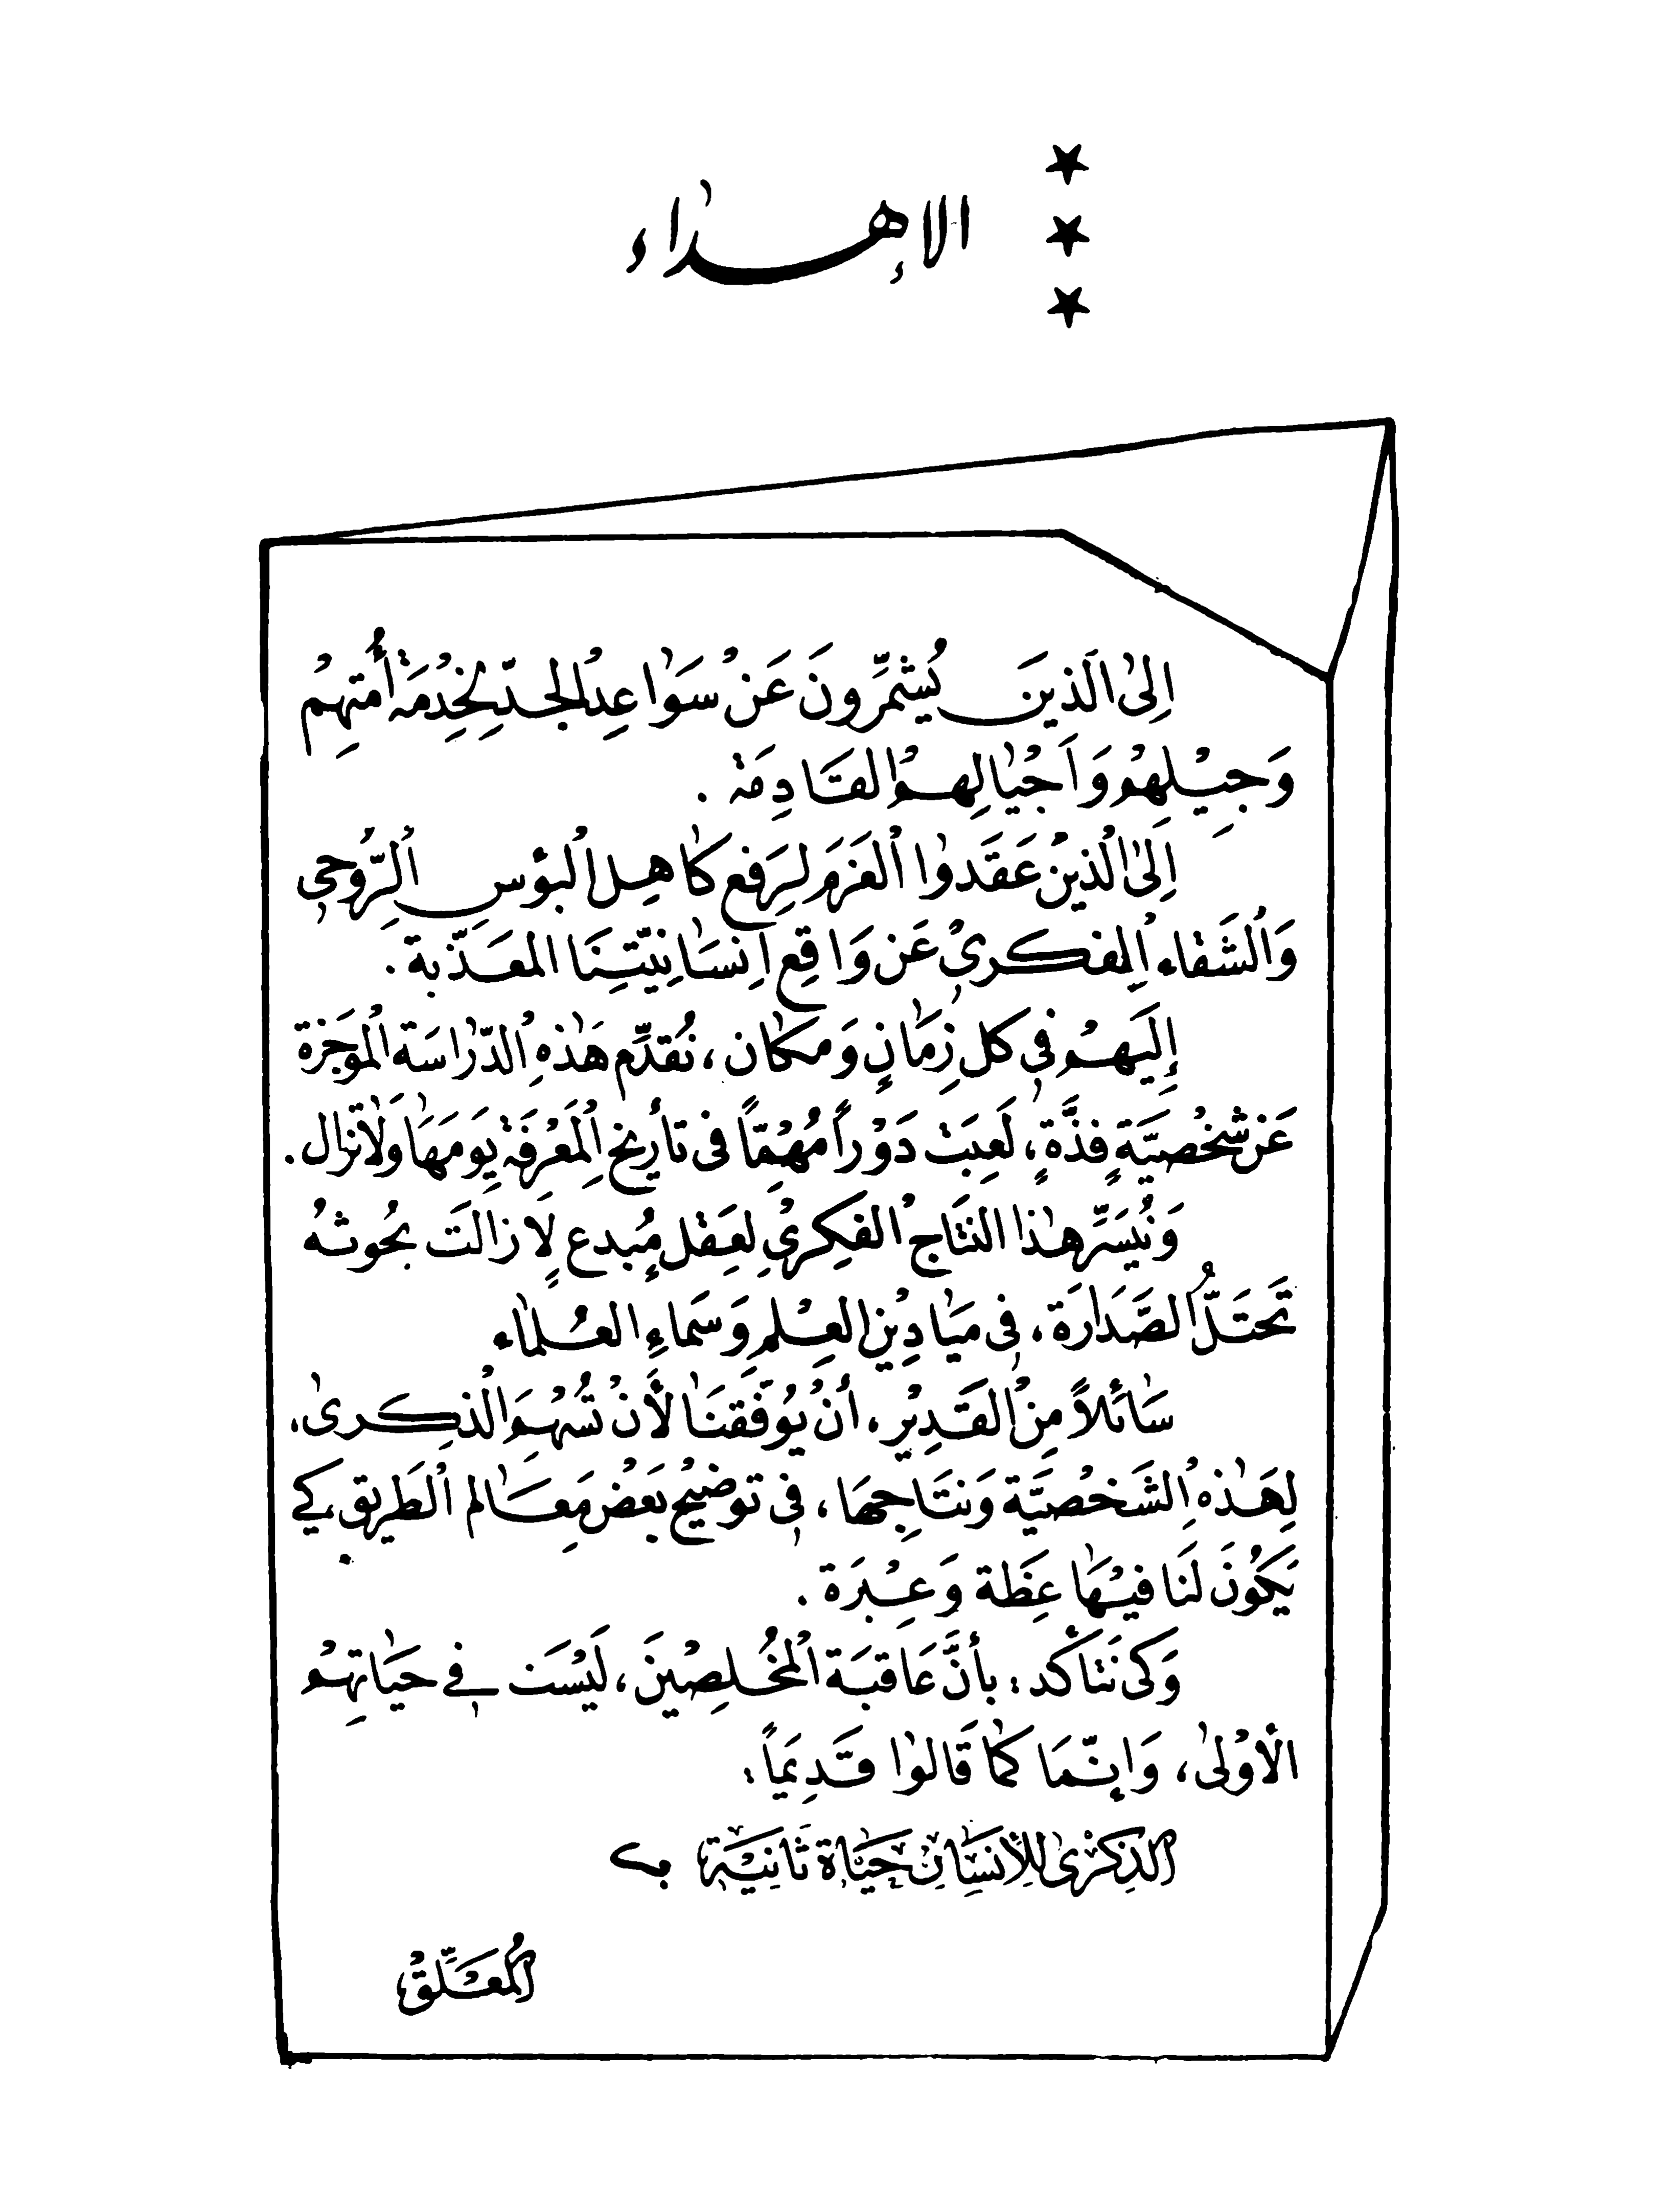 الإهداء
إلىٰ الَذينَ يُشمِّرونَ عَنْ سَوٰاعِدِ الجدّ لِخِدْمَة أُمتِهِمْ
وَجِيْلِهِمْ وَاَجْيٰالِهِمْ القَادِمَة .
إلىٰ الْذينْ عَقَدوٰا الْعَزمَ لِرَفع كاهِل الْبؤس الرُّوحِي
وَالْشَقٰاء الْفكري عَن وَاقِع اِنسَانِيّتِنَا المعَذّبة .
إلَيهِمْ في كل زمَانٍ وَمكَان ، نُقدِّم هَذٰهِ الْدّرٰاسَة الْموجَزة
عَن شخْصيَّةٍ فذَّةٍ ، لَعِبَت دَوْراً مُهْمّاً في تأريخ الْمَعْرفَة يَومَهَا وَلاٰتَزال .
وَنُيسِّر هٰذا النتَاجْ الْفِكري لِعَقل مُبدعٍ لاَ زالَت بحُوثهُ
تَحتَلُّ الصَّدَارَة ، في ميَادِيْنِ العِلْمِ وَسَماءِ العُلمٰاء
سَائلاً مِنْ الْقَدِيْرِ ، أنْ يُوَفّقنَا لأَنْ تُسْهِمَ الْذِكرىٰ ،
لِهَذٰهِ الْشَخْصيَّة وَنتَاجِهَا ، في توضيْح بَعْض مَعَالم الْطَريق ، كي
يَكونَ لَنَا فيْهَا عِظَة وَعِبْرَة .
وَكي نَتأكد : بأنَّ عَاقبَة الْمخْلِصِيْنَ ، لَيْسَت في حَيَاتِهمْ
الاُوْلىٰ ، وَإنّمَا كمٰا قَالوٰا قَدِيَماً :
الذِكرْىٰ للإِنسَانِ حَيَاة ثَانِيَة
المُعَلِّقْ